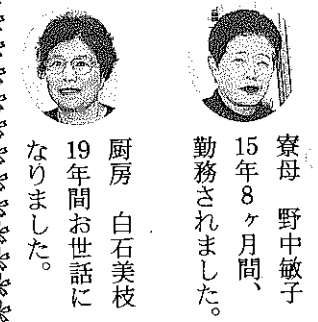 寮母　野中敏子
15年8ヶ月間、
勤務されました。
厨房　白石美枝
19年間お世話に
なりました。